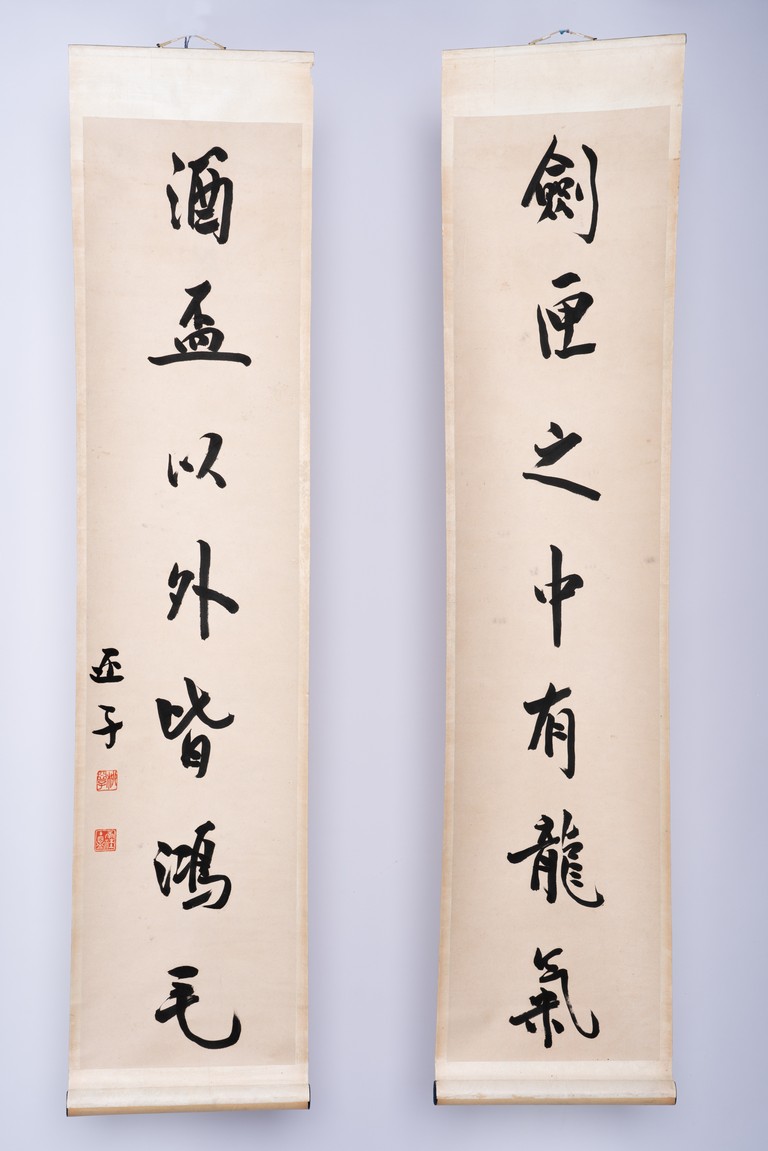 劍匣之中有龍氣
酒盃以外皆鴻毛
亚子